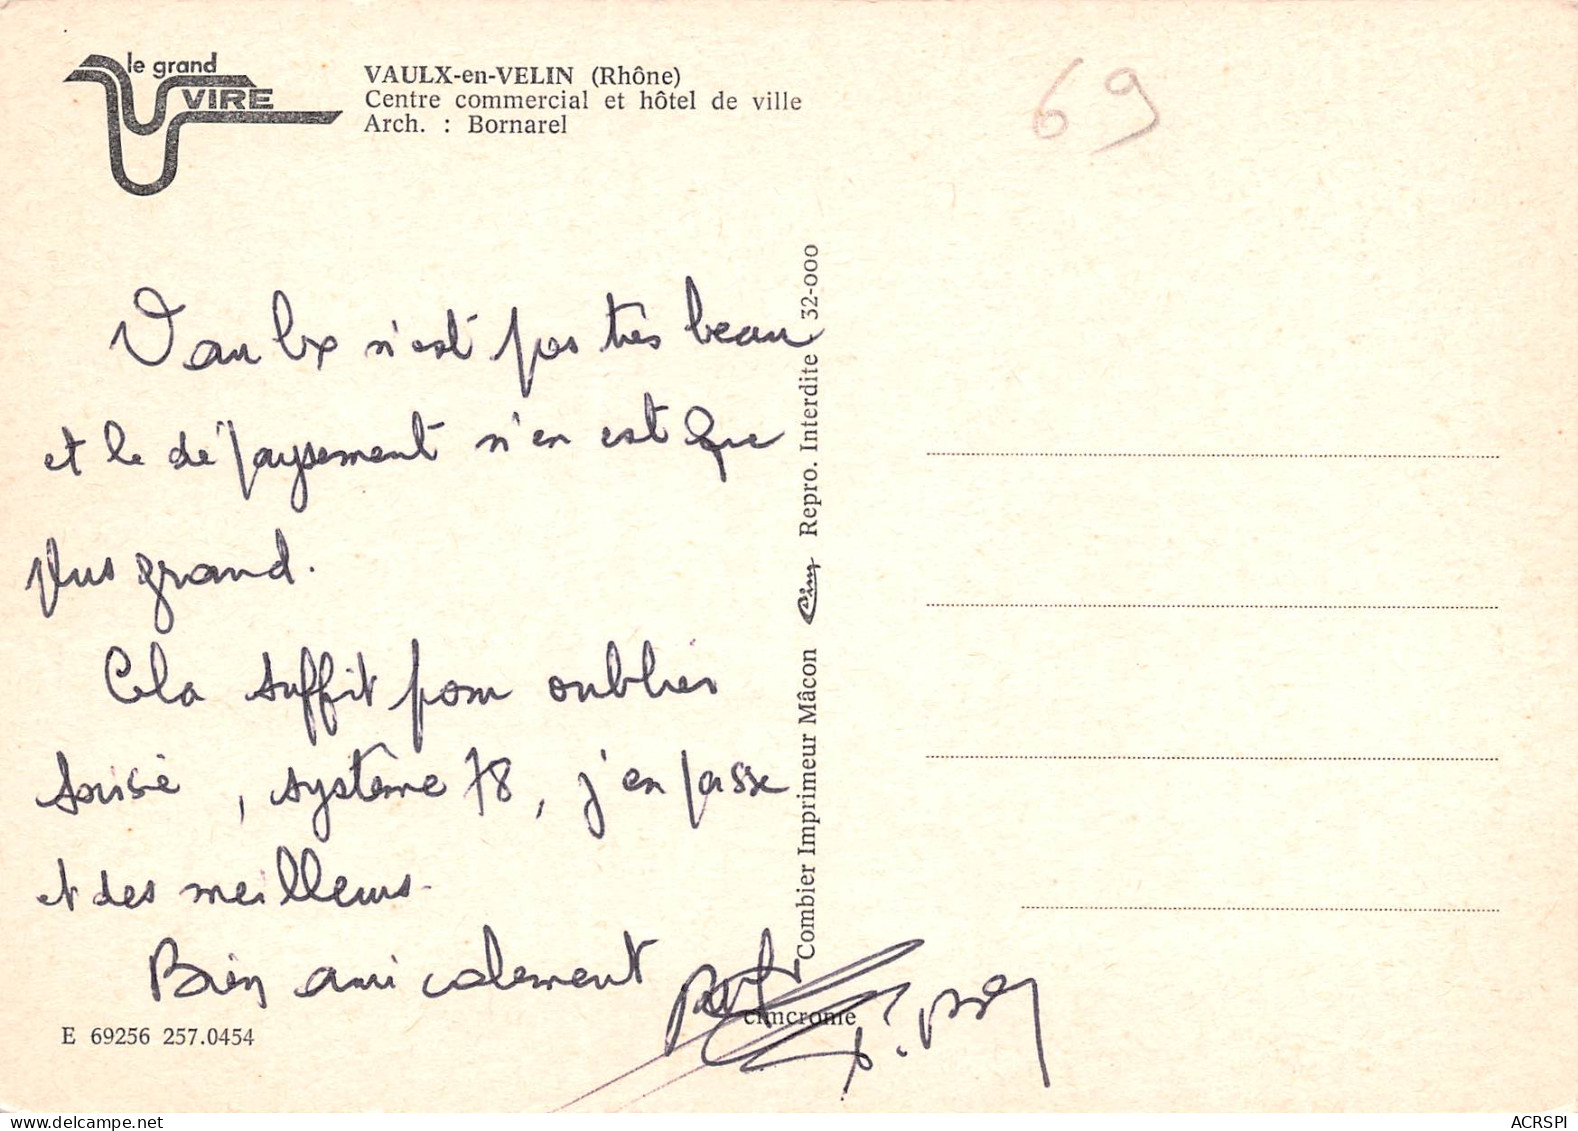 le grand
VIRE
VAULX-en-VELIN (Rhône)
Centre commercial et hôtel de ville
Arch. : Bornarel
69
Vaulx n'est pas très beau
et le dépaysement n'en est que
plus grand.
Cela suffit pour oublier
, système 78, j'en passe
et des meilleurs.
Bien amicalement
E 69256 257.0454
Combier Imprimeur Mâcon Cim Repro. Interdite 32-000
cimcrome
ACRSPI